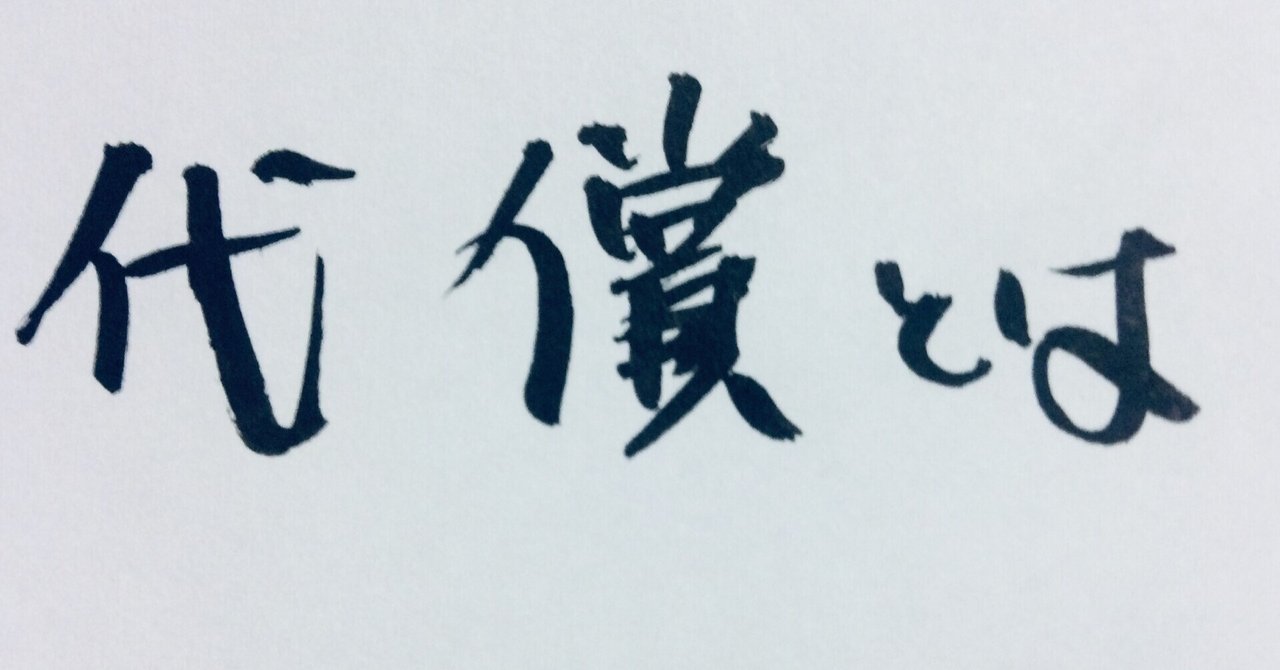 代償とは